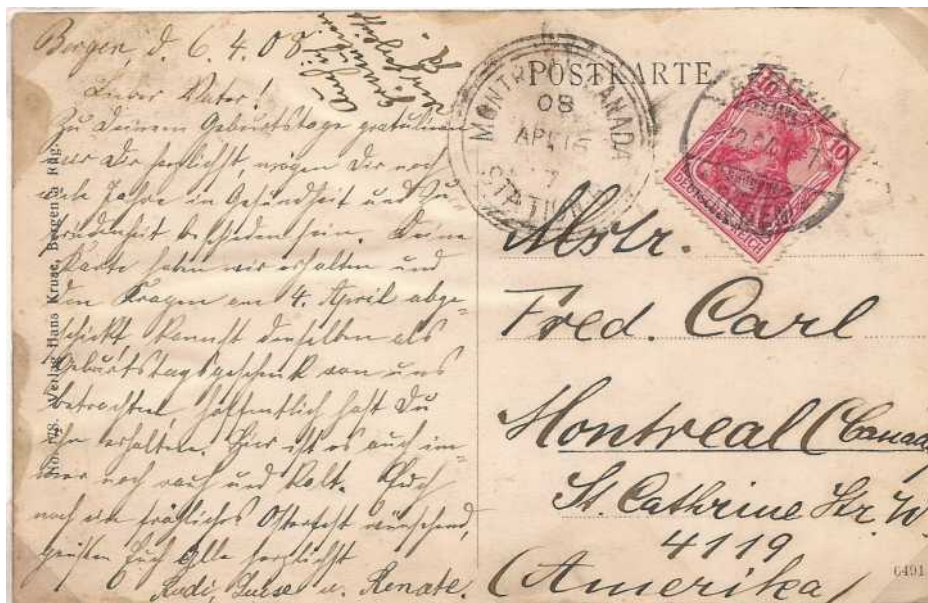 Bergen, d. 6. 4. 08.
Lieber Vater!
Zu Deinem Geburtstage gratulieren
wir Dir herzlichst, mögen Dir noch
viele Jahre in Gesundheit und Zu=
friedenheit beschieden sein. Deine
Karte haben wir erhalten und
den Kragen am 4. April abge=
schickt, kannst denselben als
Geburtstagsgeschenk von uns
betrachten hoffentlich hast Du
ihn erhalten. Hier ist es auch im=
mer noch rauh und kalt. Euch
noch ein fröhliches Osterfest wünschend,
grüßen Euch Alle herzlichst
Rudi, Luise u. Renate.
Verlag Hans Kruse, Bergen a. Rüg.
POSTKARTE
MONTREAL CANADA
08
APL 15
STATION
10
10
DEUTSCHES REICH
Mstr.
Fred. Carl
Montreal (Canada)
St. Cathrine Str. W
4119
(Amerika)
6491